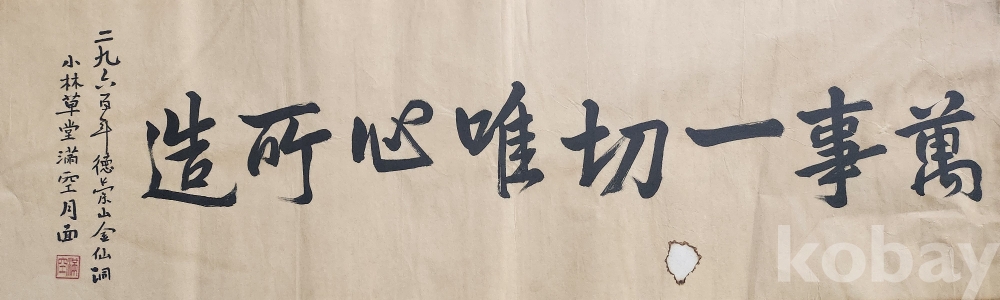 萬事一切唯心所造
二九六百年德崇山金仙洞
小林草堂滿空月面
滿空
kobay